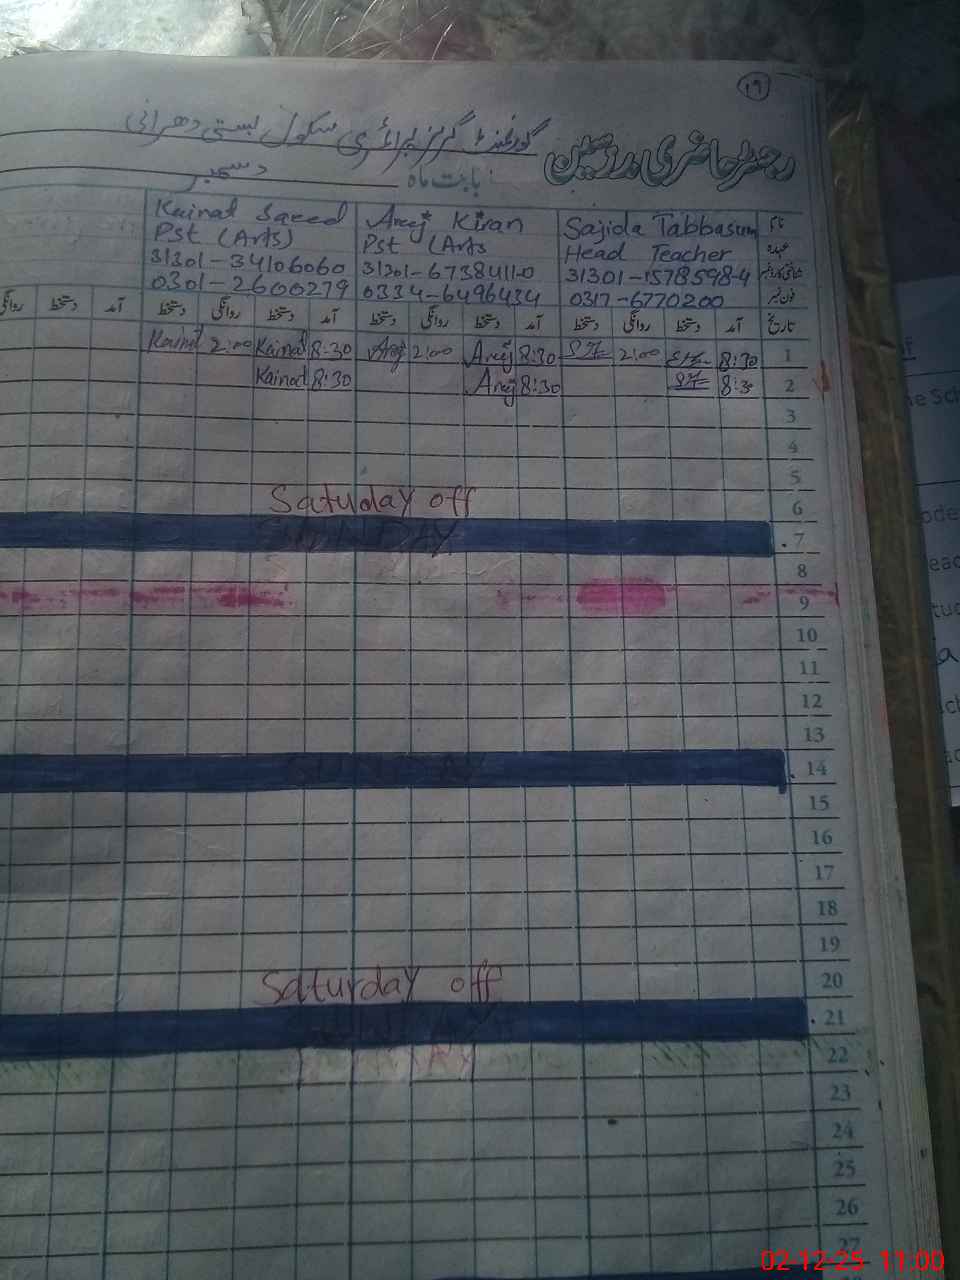 ۱۹
گورنمنٹ گرلز پرائمری سکول بستی دھرانی
رجسٹر حاضری مدرسین
بابت ماہ دسمبر
نام Sajida Tabbasum Areej Kiran Kainat Saeed
عہدہ Head Teacher Pst (Arts Pst (Arts)
شناختی کارڈ نمبر 31301-1578598-4 31301-6738411-0 31301-34106060
فون نمبر 0317-6770200 0334-6496434 0301-2600279
تاریخ آمد دستخط روانگی دستخط آمد دستخط روانگی دستخط آمد دستخط روانگی دستخط آمد دستخط روانگی
1 8:30 2:00 8:30 Areej 2:00 Areej 8:30 Kainat 2:00 Kainat
2 8:30 8:30 Areej 8:30 Kainat
3
4
5
6 Satuday off
7 SUNDAY
8
9
10
11
12
13
14 SUNDAY
15
16
17
18
19
20 Saturday off
21
22
23
24
25
26
27
02-12-25 11:00